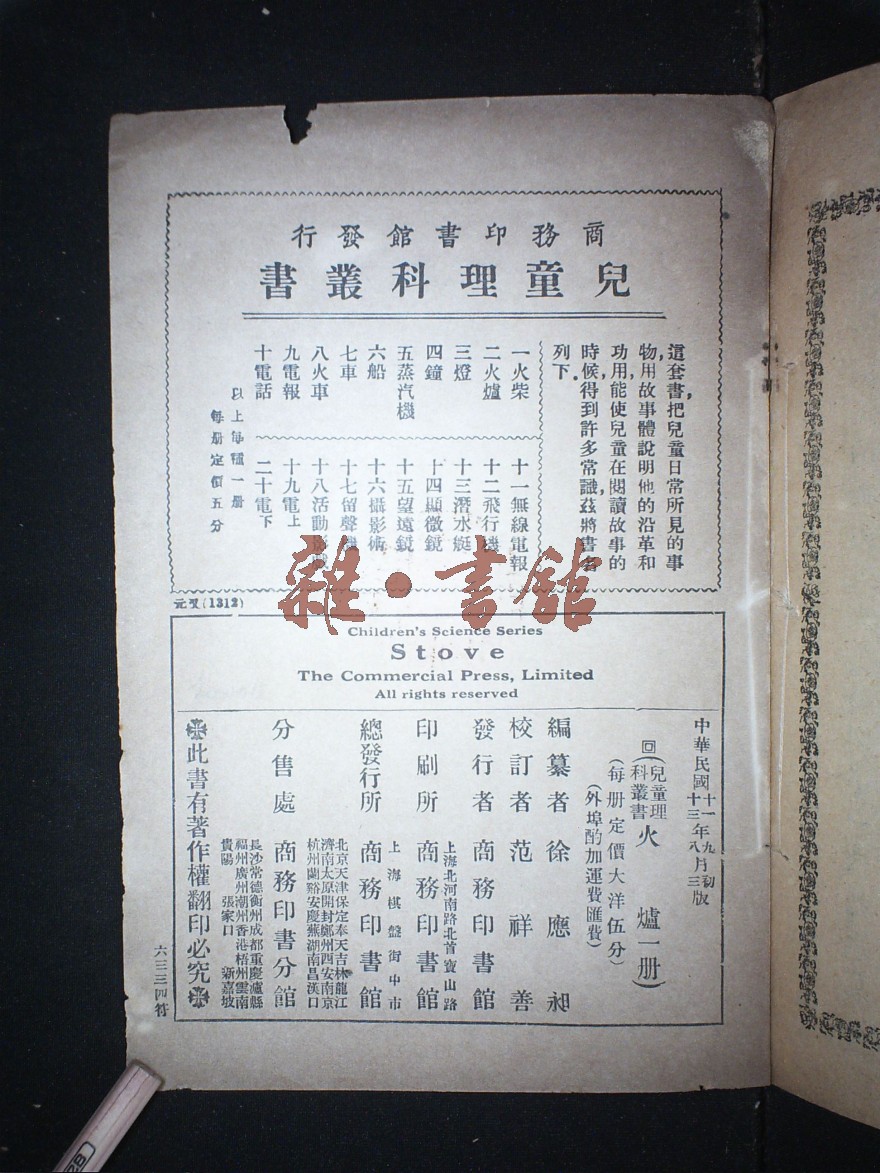 商務印書館發行
兒童理科叢書
這套書,把兒童日常所見的事
物,用故事體說明他的沿革和
功用,能使兒童在閱讀故事的
時候,得到許多常識,茲將書名
列下。
一火柴
二火爐
三燈
四鐘
五蒸汽機
六船
七車
八火車
九電報
十電話
十一無線電報
十二飛行機
十三潛水艇
十四顯微鏡
十五望遠鏡
十六攝影術
十七留聲機
十八活動影戲
十九電上
二十電下
以上每種一册
每册定價五分
元(1312)
雜·書館
Children's Science Series
Stove
The Commercial Press, Limited
All rights reserved
中華民國十一年九月初版
十三年八月三版
回(兒童理科叢書火爐一册)
(每册定價大洋伍分)
(外埠酌加運費匯費)
編纂者 徐應昶
校訂者 范祥善
發行者 商務印書館
上海北河南路北首寶山路
印刷所 商務印書館
上海棋盤街中市
總發行所 商務印書館
北京天津保定奉天吉林龍江
濟南太原開封鄭州西安南京
杭州蘭谿安慶蕪湖南昌漢口
分售處 商務印書分館
長沙常德衡州成都重慶瀘縣
福州廣州潮州香港梧州雲南
貴陽 張家口 新嘉坡
此書有著作權翻印必究
六三三四符
2B